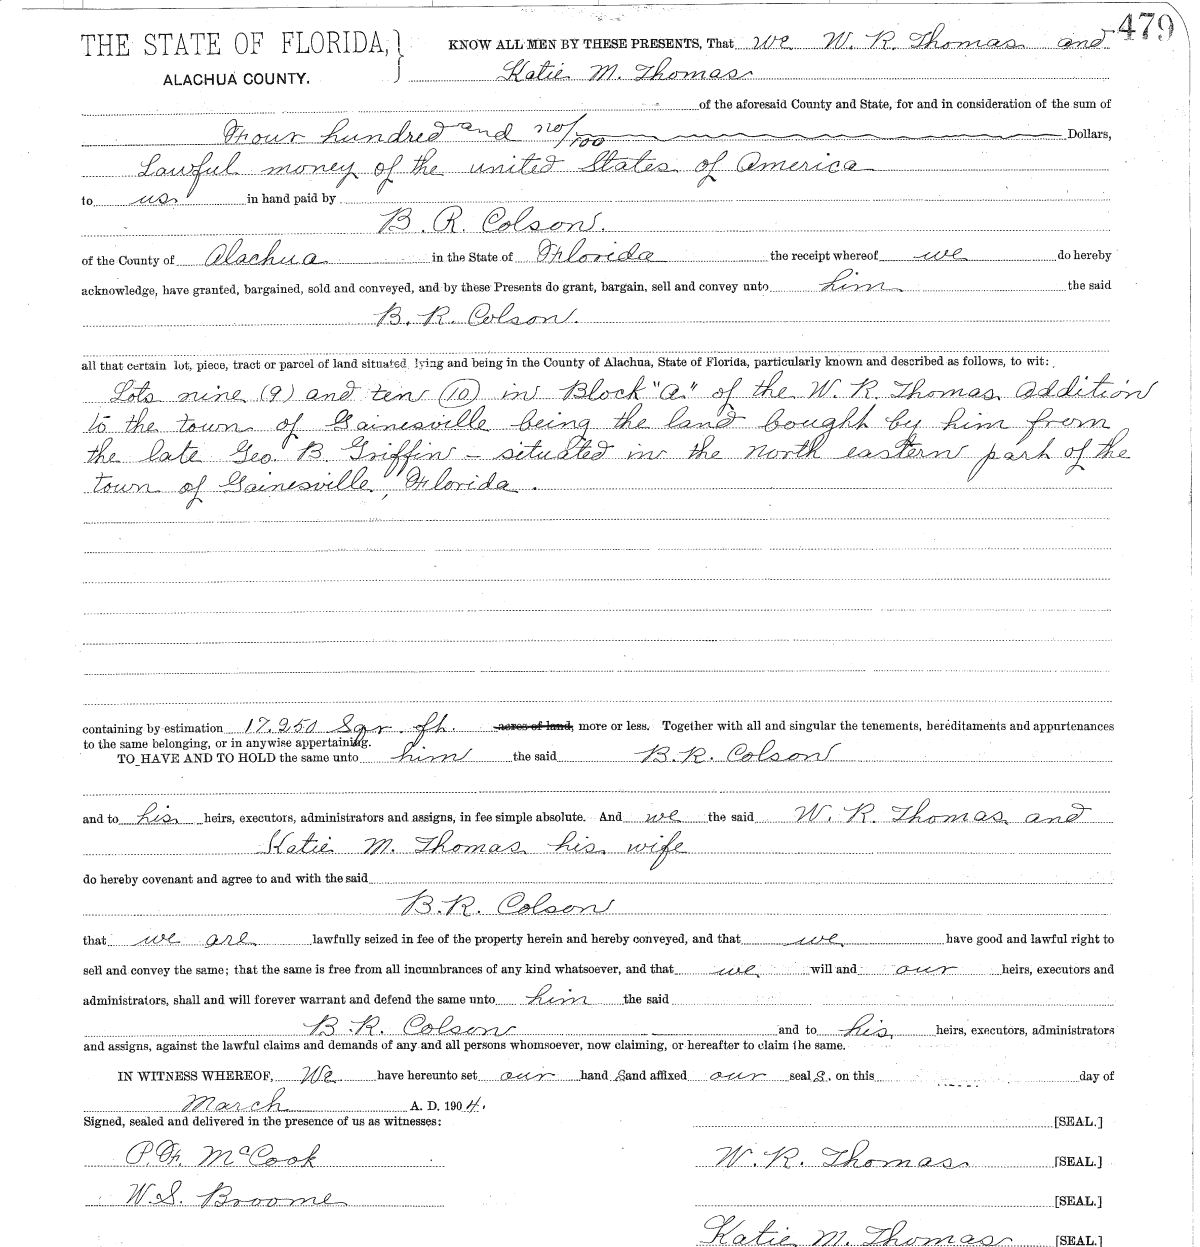 479
THE STATE OF FLORIDA,
ALACHUA COUNTY.
KNOW ALL MEN BY THESE PRESENTS, That we W. R. Thomas and
Katie M. Thomas
of the aforesaid County and State, for and in consideration of the sum of
Four hundred and no/100 Dollars,
Lawful money of the united States of America
to us in hand paid by
B. R. Colson.
of the County of Alachua in the State of Florida the receipt whereof we do hereby
acknowledge, have granted, bargained, sold and conveyed, and by these Presents do grant, bargain, sell and convey unto him the said
B. R. Colson.
all that certain lot, piece, tract or parcel of land situated lying and being in the County of Alachua, State of Florida, particularly known and described as follows, to wit:
Lots nine (9) and ten (10) in Block "A" of the W. R. Thomas addition
to the town of Gainesville being the land bought by him from
the late Geo. B. Griffin - situated in the north eastern part of the
town of Gainesville, Florida.
containing by estimation 17.250 Sqr. ft. acres of land, more or less. Together with all and singular the tenements, hereditaments and appurtenances
to the same belonging, or in anywise appertaining.
TO HAVE AND TO HOLD the same unto him the said B. R. Colson
and to his heirs, executors, administrators and assigns, in fee simple absolute. And we the said W. R. Thomas and
Katie M. Thomas his wife
do hereby covenant and agree to and with the said
B. R. Colson
that we are lawfully seized in fee of the property herein and hereby conveyed, and that we have good and lawful right to
sell and convey the same; that the same is free from all incumbrances of any kind whatsoever, and that we will and our heirs, executors and
administrators, shall and will forever warrant and defend the same unto him the said
B. R. Colson and to his heirs, executors, administrators
and assigns, against the lawful claims and demands of any and all persons whomsoever, now claiming, or hereafter to claim the same.
IN WITNESS WHEREOF, We have hereunto set our hand s and affixed our seal s. on this day of
March A. D. 1904.
Signed, sealed and delivered in the presence of us as witnesses: [SEAL.]
P. F. McCook W. R. Thomas [SEAL.]
W. S. Broome [SEAL.]
Katie M. Thomas [SEAL.]